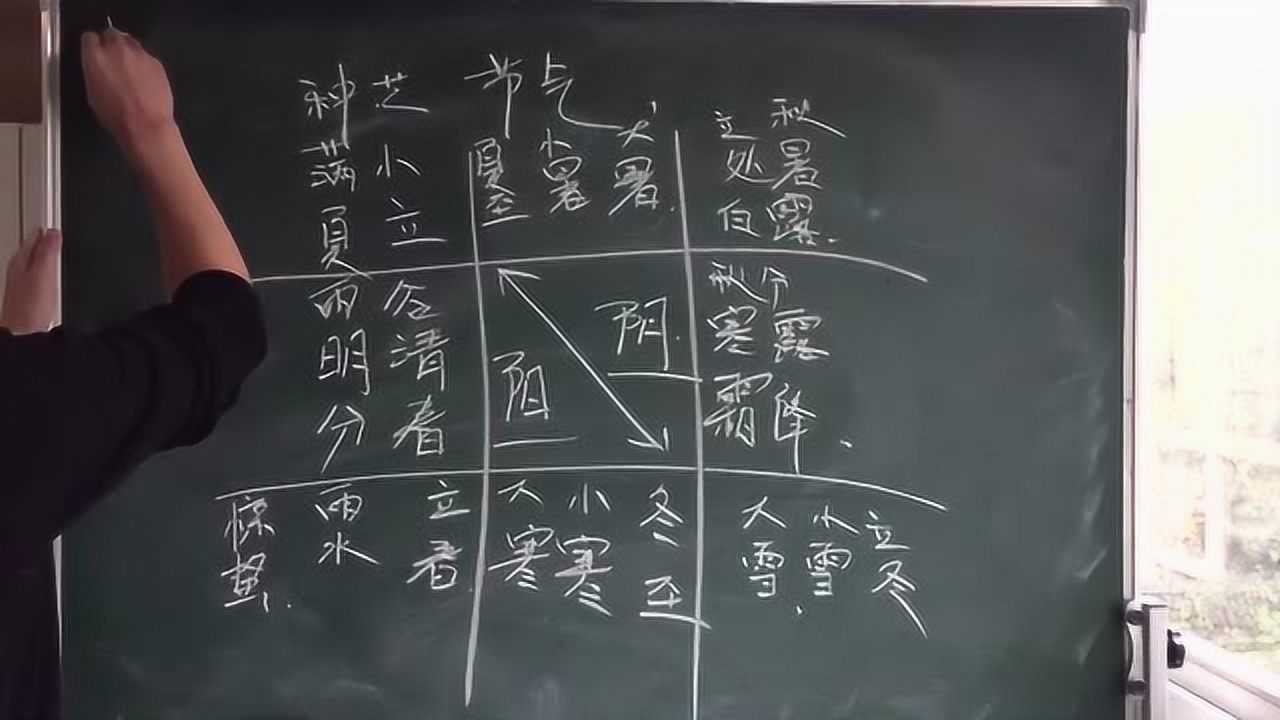 节气
种芒
满小
夏立
夏至
小暑
大暑
立秋
处暑
白露
雨谷
明清
分春
阳
阴
秋分
寒露
霜降
惊蛰
雨水
立春
大寒
小寒
冬至
大雪
小雪
立冬